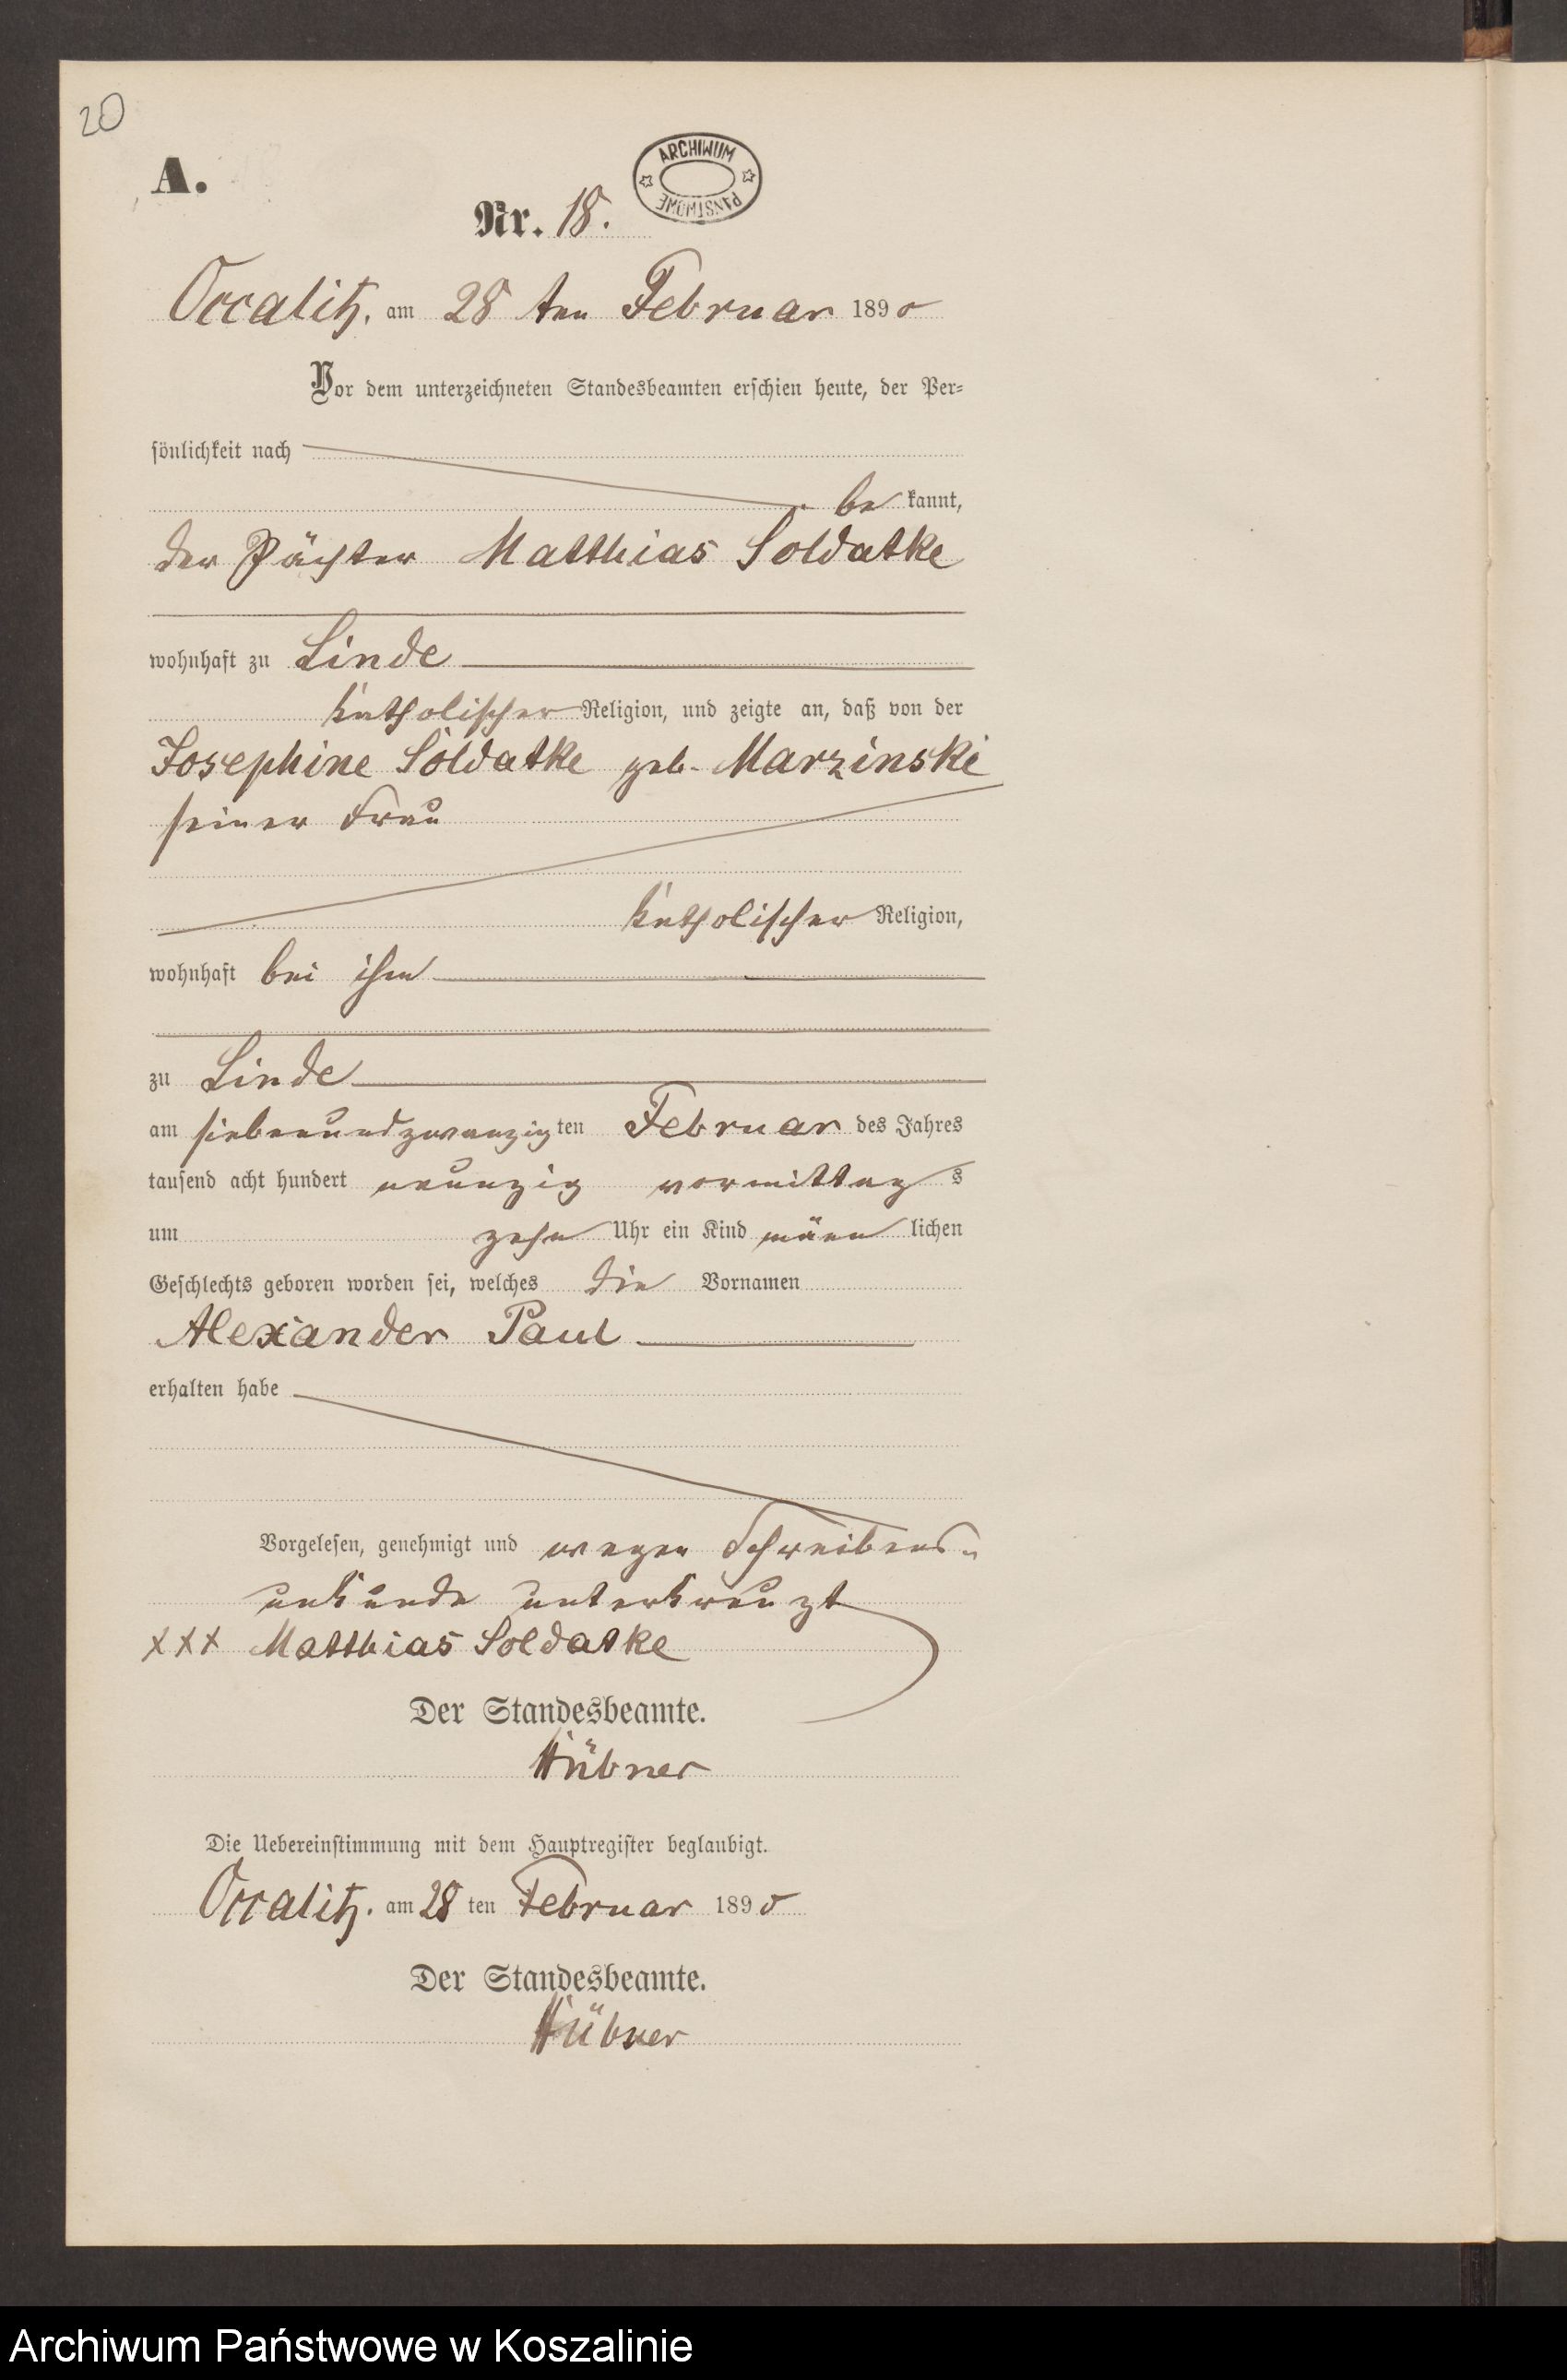 20
A.
ARCHIWUM
PAŃSTWOWE
Nr. 18.
Occalitz, am 28 ten Februar 1890
Vor dem unterzeichneten Standesbeamten erschien heute, der Per=
sönlichkeit nach
be kannt,
der Pächter Matthias Soldatke
wohnhaft zu Linde
katholischer Religion, und zeigte an, daß von der
Josephine Soldatke geb. Marzinski
seiner Frau
katholischer Religion,
wohnhaft bei ihm
zu Linde
am siebenundzwanzig ten Februar des Jahres
tausend acht hundert neunzig vormittag s
um zehn Uhr ein Kind männ lichen
Geschlechts geboren worden sei, welches die Vornamen
Alexander Paul
erhalten habe
Vorgelesen, genehmigt und wegen Schreibens-
unkunde unterkreuzt
xxx Matthias Soldatke
Der Standesbeamte.
Hübner
Die Uebereinstimmung mit dem Hauptregister beglaubigt.
Occalitz. am 28 ten Februar 1890
Der Standesbeamte.
Hübner
Archiwum Państwowe w Koszalinie